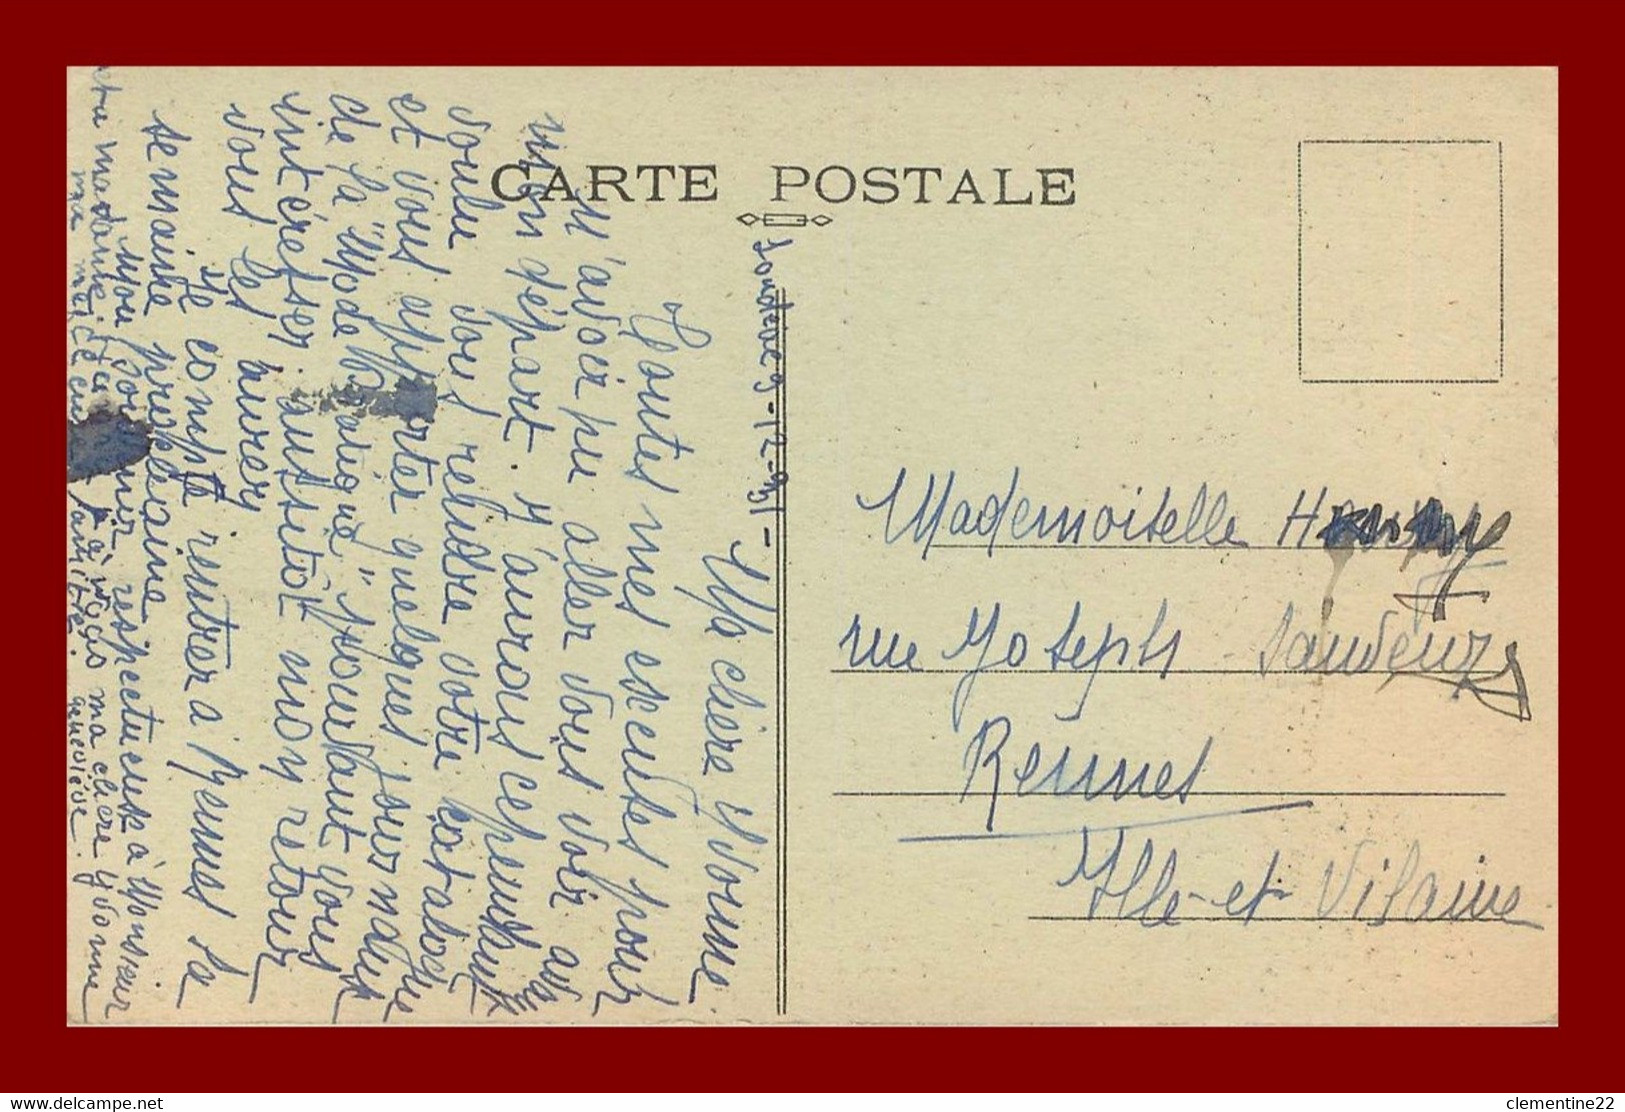 CARTE POSTALE
Loudéac 9-12-31-
Ma chère Yvonne.
Toutes mes excuses pour
n'avoir pu aller vous voir avant
mon départ. J'aurais cependant
voulu vous rendre votre catalogue
et vous apporter quelques journaux
de la "Mode Pratique" pouvant vous
intéresser aussitôt mon retour
vous les aurez
Je compte rentrer à Rennes la
semaine prochaine
Mon souvenir respectueux à Monsieur
et à madame et à vous ma chère Yvonne
ma amitié.
geneviève.
Mademoiselle
rue Joseph Sauveur
Rennes
Ille-et-Vilaine
www.delcampe.net
clementine22